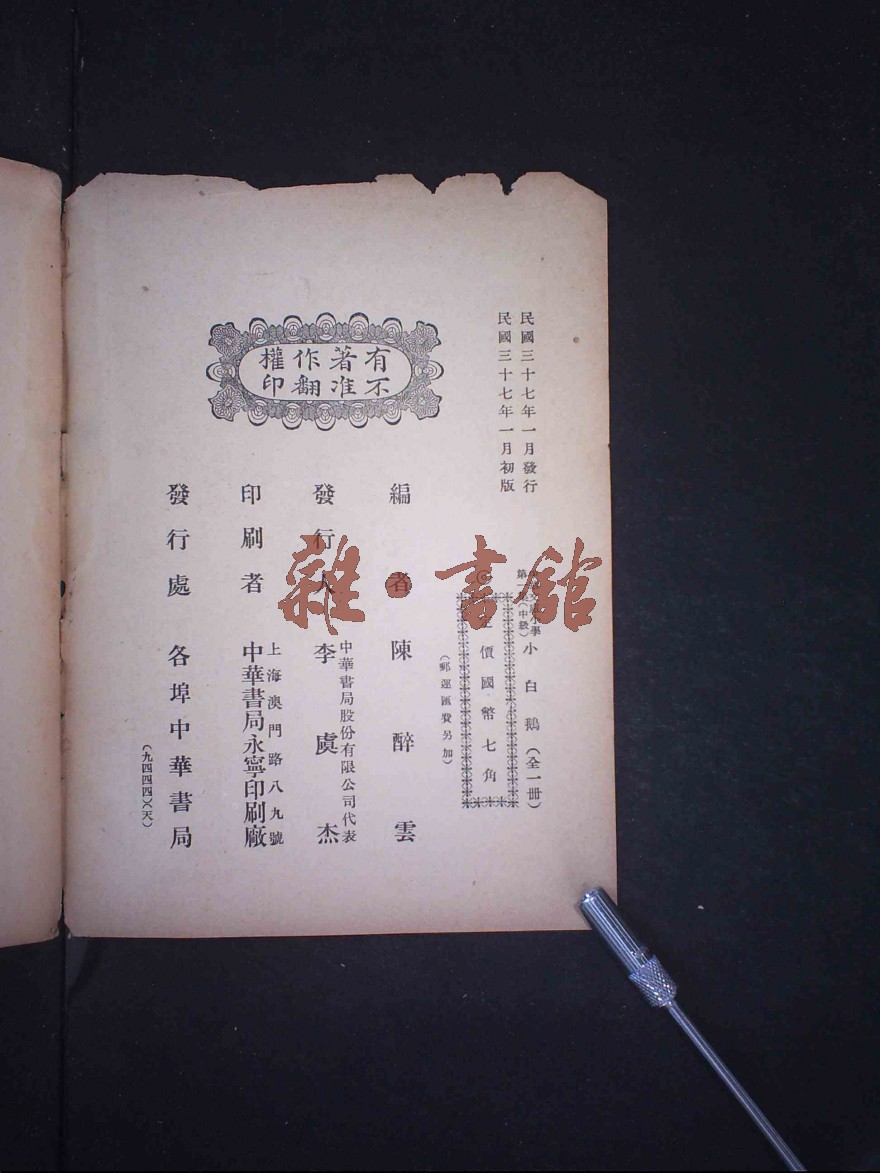 民國三十七年一月發行
民國三十七年一月初版
小學
第一(中級)
小白鵝(全一冊)
定價國幣七角
(郵運匯費另加)
有著作權
不准翻印
編者 陳醉雲
發行人 李虞杰
中華書局股份有限公司代表
印刷者 中華書局永寧印刷廠
上海澳門路八九號
發行處 各埠中華書局
(九四四四)(天)
雜·書館